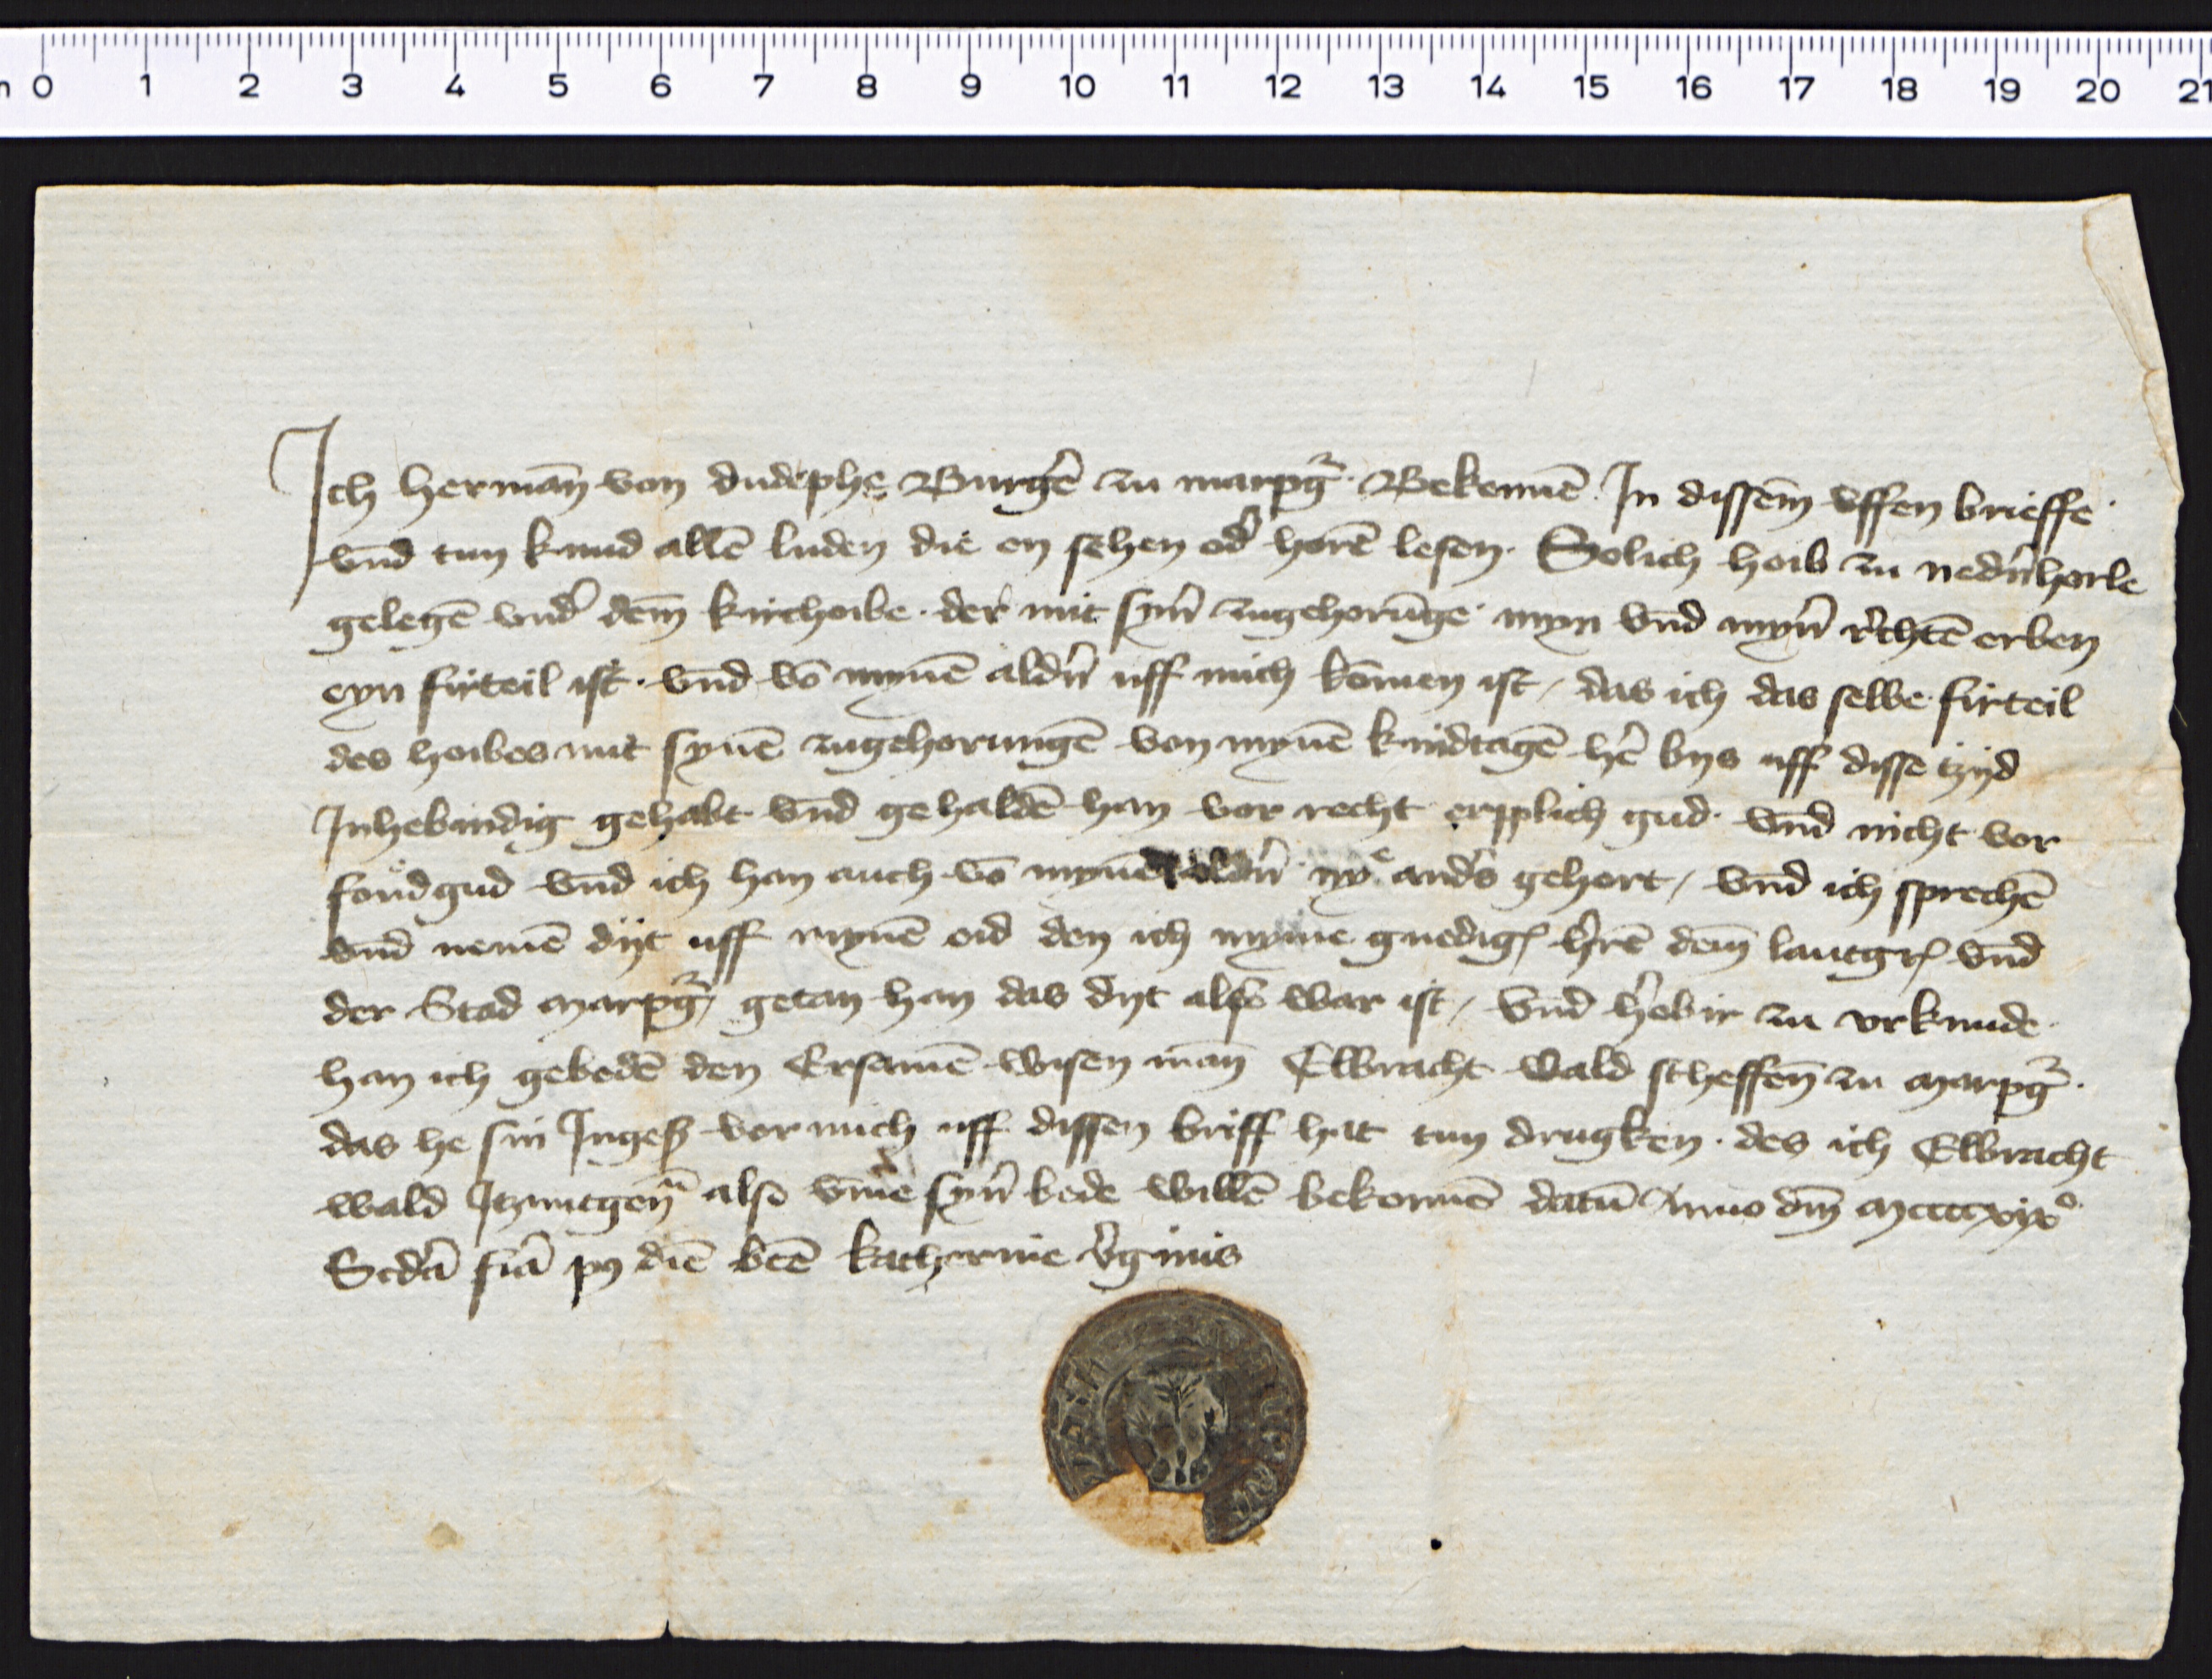 0 1 2 3 4 5 6 7 8 9 10 11 12 13 14 15 16 17 18 19 20 21
Ich hermān von dudephe Burgẽ zu marpg̃ · Bekennē In dissem̄ uffen brieffe ·
vnd tun kund allē luden die en sehen od̾ horē lesen · Solich hoib zu ned̾nhorle
gelegē vnd̾ dem̄ kirchoibe · der mit syn̄ zugehorūge · myn vnd myn̄ r̾chtē erben
eyn firteil ist · vnd vō mynē aldn̄ uff mich kōmen ist / das ich das selbe firteil
des hoibes mit synē zugehorungē von mynē kindtagē h̾ bys uff disse tzijd
Inhebindig gehabt vnd gehaldē han vor recht erpplich gud · vnd nicht vor
gud vnd ich han auch vō mynē aldn̄ nye and̾s gehort / vnd ich sprechē
vnd nemē dijt uff mynē eid den ich myme gnedigꝭ h̾rē dem̄ lantgrꝭ vnd
der Stad marpg̃ / getan han das dyt also war ist / vnd h̾obir zu vrkunde ·
han ich gebedē den Ersamē wisen mān Elbracht Wald scheffen̄ zu marpg̃ ·
das he sin Ingeß vor mich uff dissen briff hat tun drugken · des ich Elbracht
wald Itzuntgen̄ also vm̄e syn̄ bede willē bekennē datū Anno dm̄ mccccxix°
Scdā fīa pꝰ diē btē katherine v̾ginis